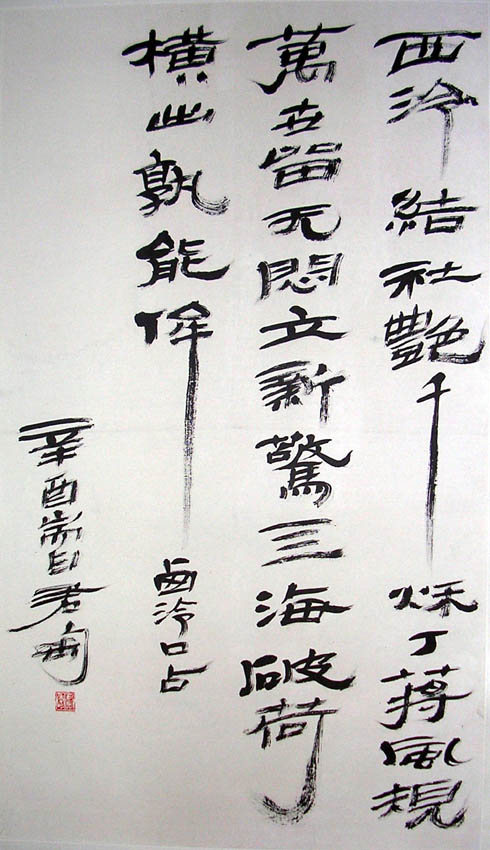 西泠結社艷千秋丁蔣風規
萬世留无悶立新驚三海破荷
橫此孰能侔
西泠口占
辛酉君匋